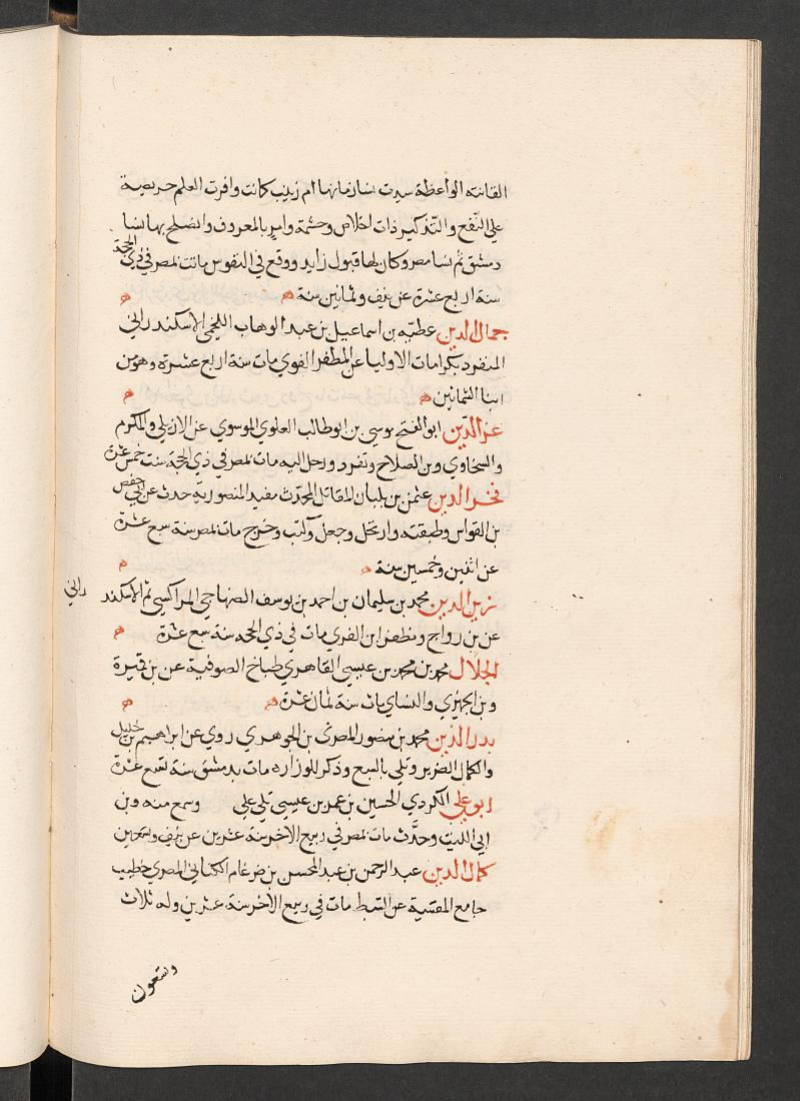 القانته الواعظة سيدت نسا زمانها ام زينب كانت وافرت العلم حريصة
على النفع والتذكير ذات اخلاص وحشمة وامر بالمعروف وانصلح بها نسا
دمشق ثم نسا مصر وكان لها قبول زايد ووقع في النفوس ماتت بمصر في ذي الحجة
سنة اربع عشرة عن نيف وثمانين سنة
جمال الدين عطيه بن اسماعيل بن عبد الوهاب اللخمي الاسكندراني
المنفرد بكرامات الاوليا عن المظفر الفوي مات سنة اربع عشرة وهو من
ابنا الثمانين
عز الدين ابو الفتح موسى بن ابو طالب العلوي الموسوي عن الاربلي والمكرم
والسخاوي وبن الصلاح وتفرد ورحل اليه مات بمصر في ذي الحجة سنت خمس عشرة
فخر الدين عثمن بن بلبان المقاتل المحدث مفيد المنصورية حدث عن ابي حفص
بن القواس وطبقته وارتحل وجعل وكتب وخرج مات بمصر سنة سبع عشرة
عن اثنين وخمسين سنة
زين الدين محمد بن سليمان بن احمد بن يوسف الصنهاجي المراكسي ثم الاسكند راني
عن بن رواج ومظفر ابن الفوي مات في ذي الحجه سنة سبع عشرة
الجلال محمد بن محمد بن عيسى القاهري طباخ الصوفية عن بن قميرة
وبن الجميزي والساي مات سنة ثمان عشرة
بدر الدين محمد بن منصور المصرى بن الجوهري روي عن ابراهيم بن خليل
والكمال الضرير وتلى بالسبع وذكر للوزاره مات بدمشق سنة تسع عشرة
ابو علي الكردي الحسين بن عمر بن عيسى تلى على وسمع منه وبن
ابي الليت وحدث مات بمصر في ربيع الاخر سنة عشرين عن نيف وتسعين
كمال الدين عبد الرحمن بن عبد المحسن بن ضرغام الكناني المصري خطيب
جامع المقسية عن السبط مات في ربيع الاخر سنة عشرين وله ثلاث
وتسعون